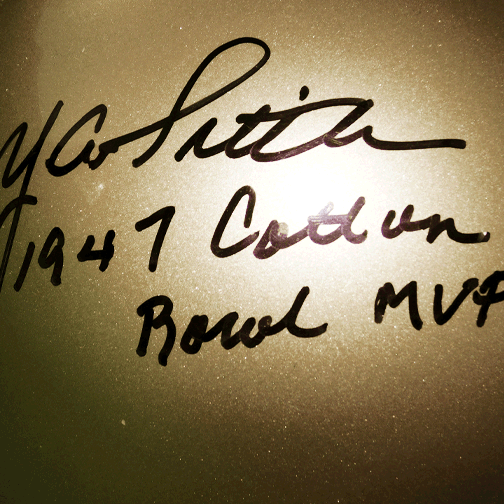 YA Tittle
1947 Cotton
Bowl MVP